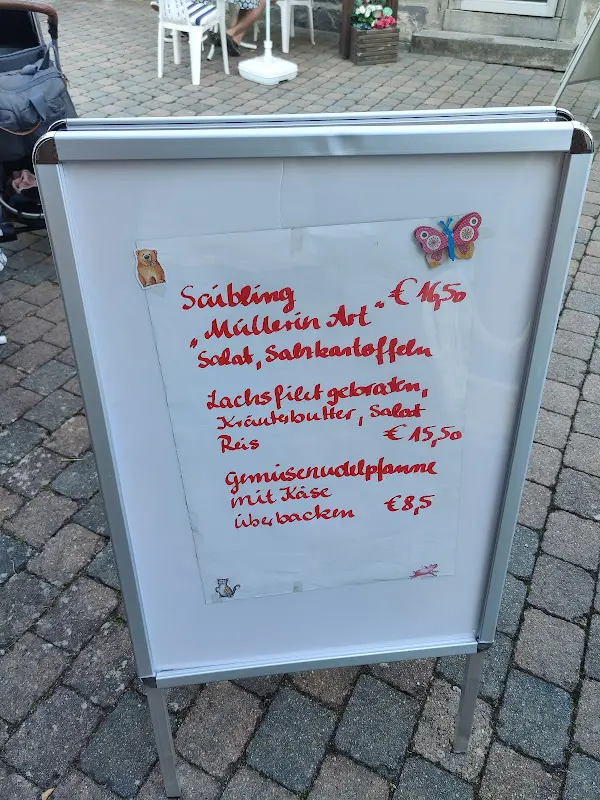 Saibling € 16,50
„Müllerin Art"
Salat, Salzkartoffeln
Lachsfilet gebraten,
Kräuterbutter, Salat
Reis € 15,50
Gemüsenudelpfanne
mit Käse
überbacken €8,5